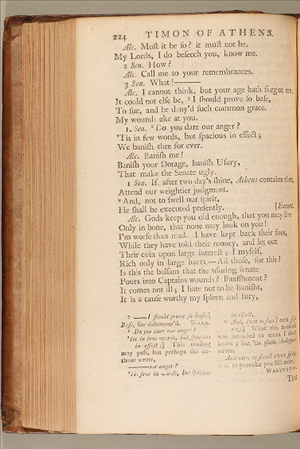 224 TIMON OF ATHENS.
Alc. Muſt it be ſo? it muſt not be.
My Lords, I do beſeech you, know me.
2 Sen. How?
Alc. Call me to your remembrances.
3 Sen. What!
Alc. I cannot think, but your age hath forgot me,
It could not elſe be, ⁷ I ſhould prove ſo baſe,
To ſue, and be deny'd ſuch common grace.
My wounds ake at you.
1. Sen. ⁸ Do you dare our anger?
'Tis in few words, but ſpacious in effect;
We baniſh thee for ever.
Alc. Baniſh me!
Baniſh your Dotage, baniſh Uſury,
That make the Senate ugly.
1 Sen. If, after two day's ſhine, Athens contains thee,
Attend our weightier judgment.
⁹ And, not to ſwell our ſpirit,
He ſhall be executed preſently. [Exeunt.
Alc. Gods keep you old enough, that you may live
Only in bone, that none may look on you!
I'm worſe than mad. I have kept back their foes,
While they have told their money, and let out
Their coin upon large intereſt; I myſelf,
Rich only in large hurts.—All thoſe, for this?
Is this the balſam that the uſuring ſenate
Pours into Captains wounds? Baniſhment?
It comes not ill; I hate not to be baniſht,
It is a cauſe worthy my ſpleen and fury,
7 — I ſhould prove ſo baſe,]
Baſe, for diſhonour'd. WARB.
⁸ Do you dare our anger?
'Tis in few words, but ſpacious
in effect;] This reading
may paſs, but perhaps the au-
thour wrote,
our anger?
'Tis few in words, but ſpacious
in effect.
9 And, not to ſwell our